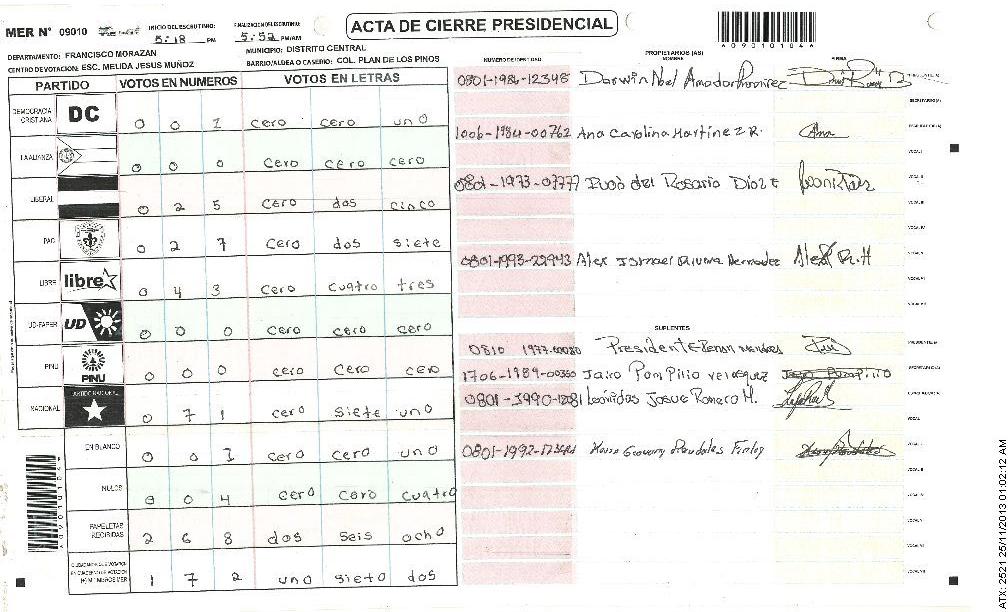 ACTA DE CIERRE PRESIDENCIAL
MER N° 09010
INICIO DEL ESCRUTINIO: 5:18 PM
FINALIZACION DEL ESCRUTINIO: 5:52 PM/AM
A09010104
DEPARTAMENTO: FRANCISCO MORAZAN
MUNICIPIO: DISTRITO CENTRAL
CENTRO DE VOTACION: ESC. MELIDA JESUS MUÑOZ
BARRIO/ALDEA O CASERIO: COL. PLAN DE LOS PINOS
PARTIDO VOTOS EN NUMEROS VOTOS EN LETRAS
DEMOCRACIA CRISTIANA DC 0 0 1 cero cero uno
LA ALIANZA 0 0 0 cero cero cero
LIBERAL 0 2 5 cero dos cinco
PAC 0 2 7 cero dos siete
LIBRE libre 0 4 3 cero cuatro tres
UD-FAPER UD 0 0 0 cero cero cero
PINU PINU 0 0 0 cero cero cero
NACIONAL PARTIDO NACIONAL 0 7 1 cero siete uno
EN BLANCO 0 0 1 cero cero uno
NULOS 0 0 4 cero cero cuatro
PAPELETAS RECIBIDAS 2 6 8 dos seis ocho
1 7 2 uno sieto dos
NUMERO DE IDENTIDAD
PROPIETARIOS (AS)
NOMBRE
FIRMA
0801-1986-12348 Darwin Noel Amador Ramirez
1006-1984-00762 Ana Carolina Martinez R. Ana
0801-1973-07777 del Rosario Díaz
0801-1993-22943 Alex Ismael Rivera Hernandez Alex R.H
SUPLENTES
0810 1977-00080 Presidente
1706-1989-00360 Jairo Pompilio Velasquez Jairo Pompilio
Leonidas Josue Romero M.
Giovany
ATX: 2521 25/11/2013 01:02:12 AM